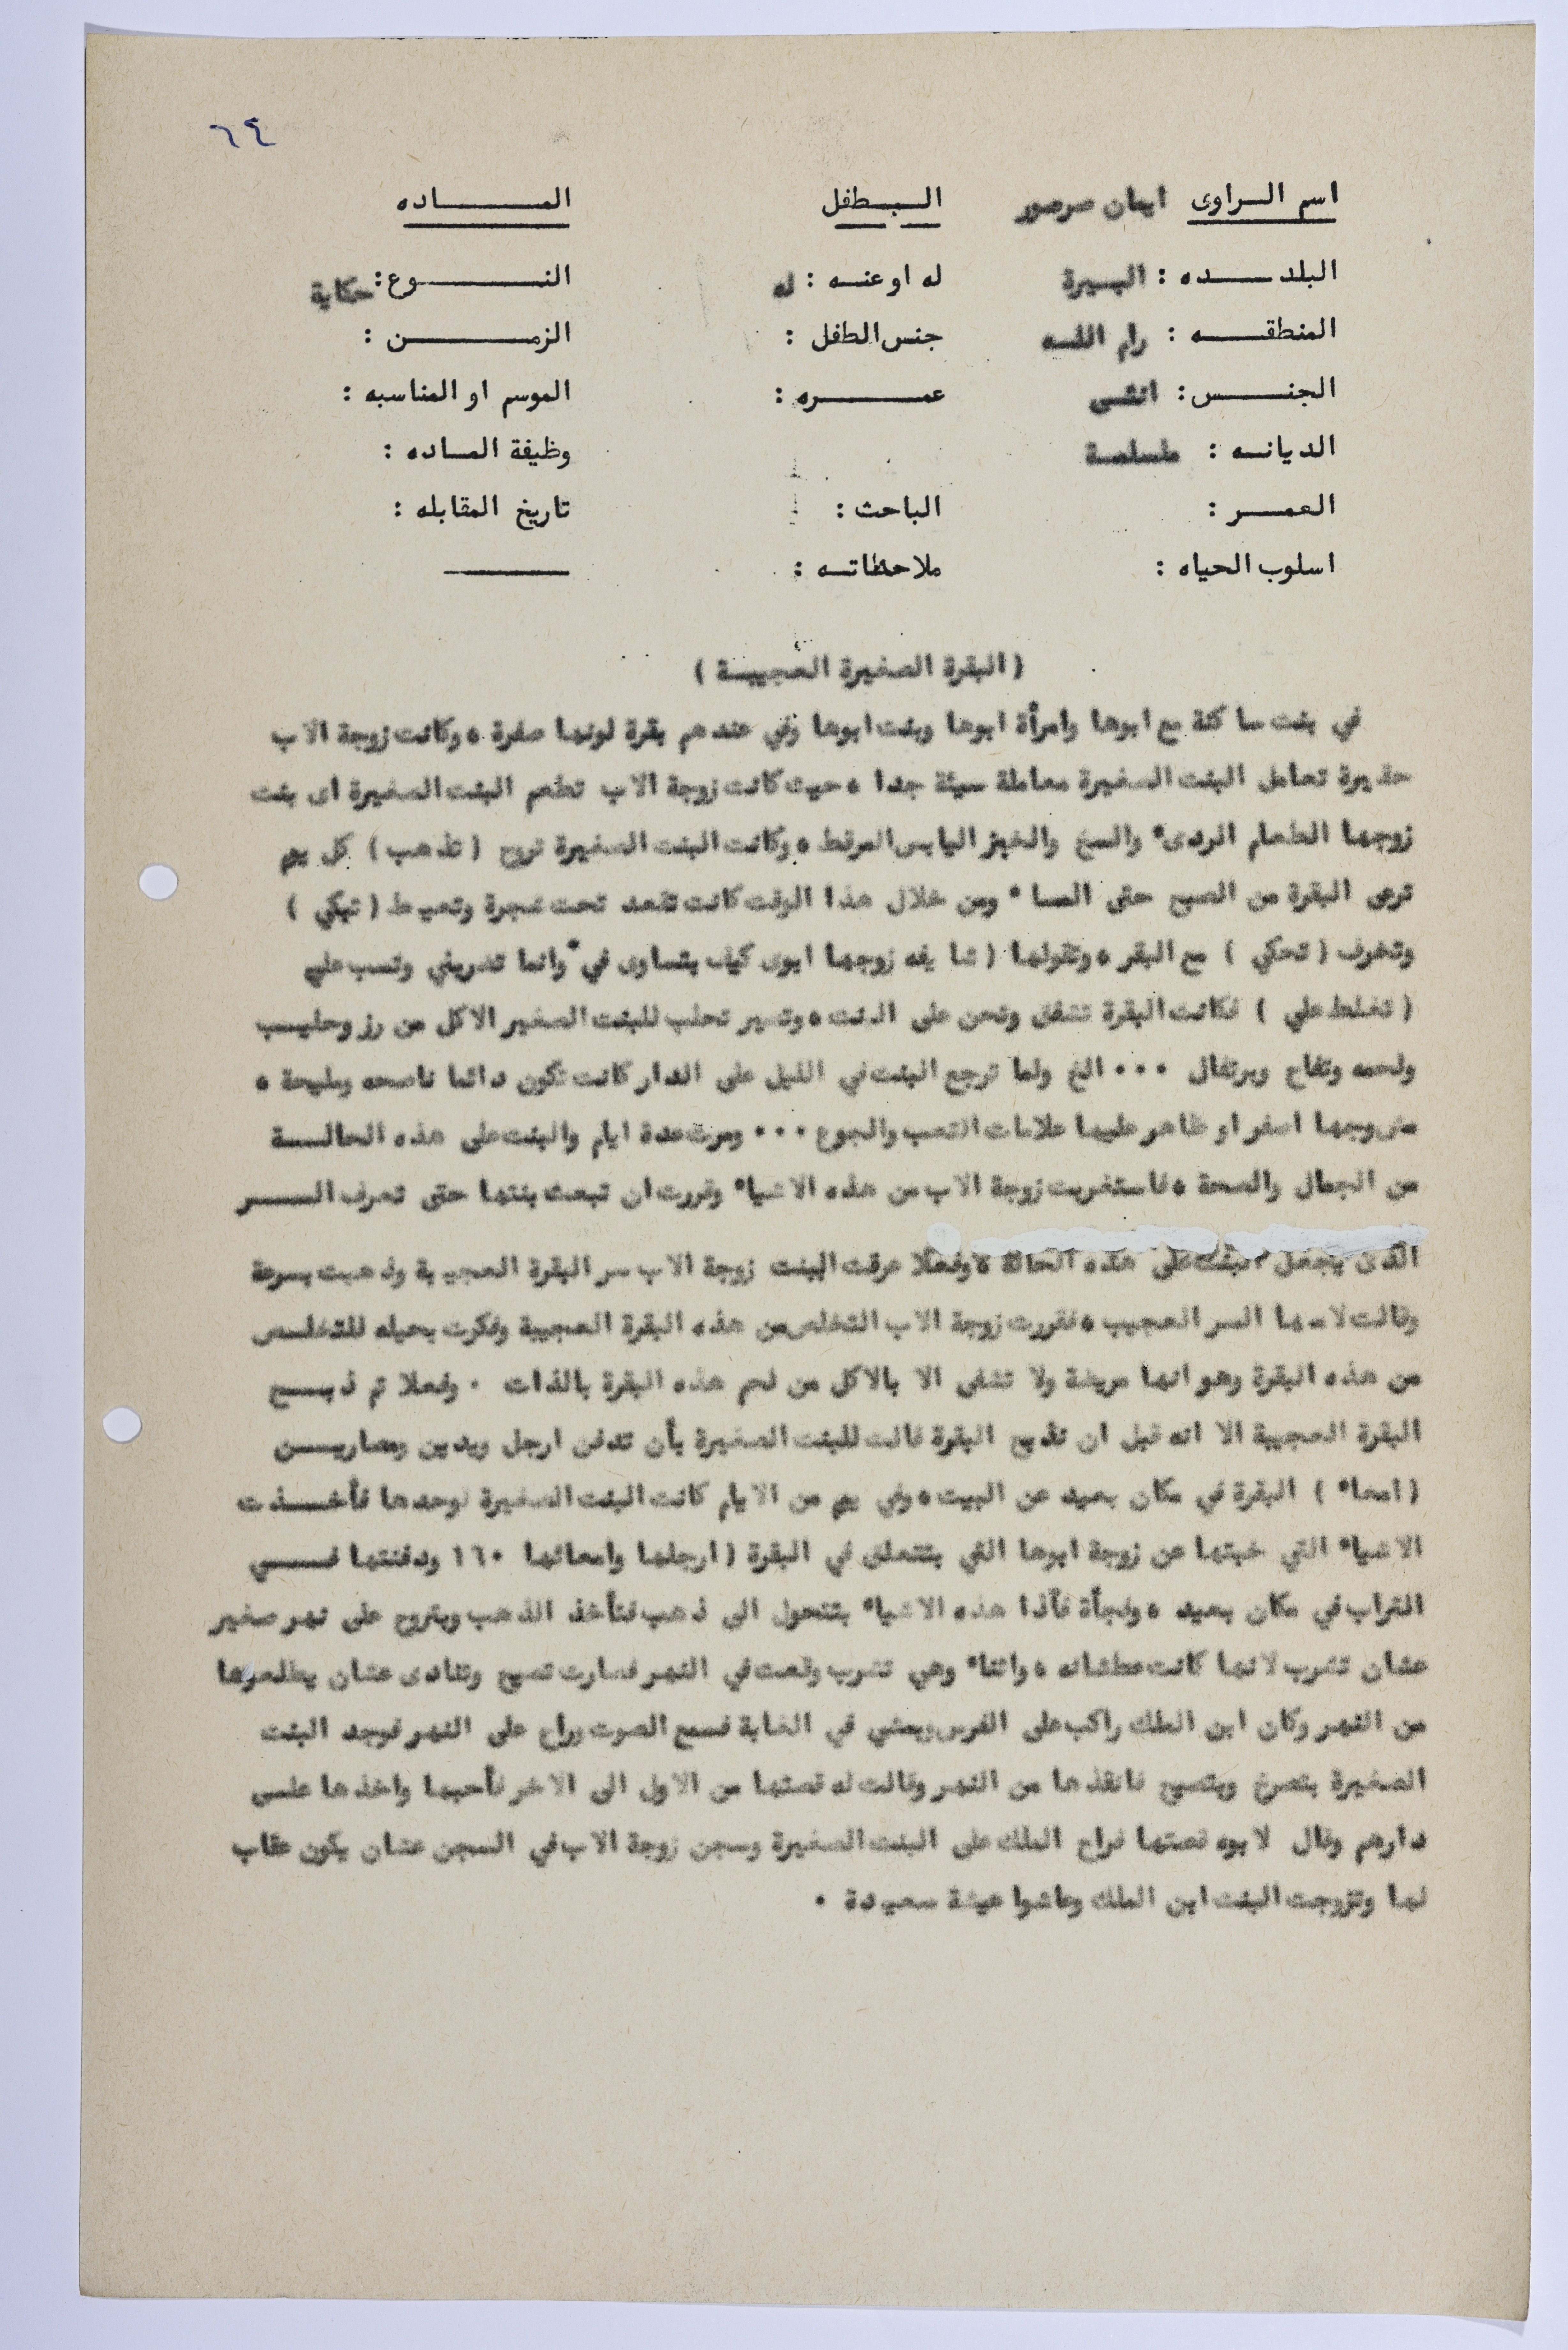 ٦٤
اسم الراوى ايمان صرصور الطفل الماده
البلده : البيرة له او عنه : له النوع : حكاية
المنطقه : رام الله جنس الطفل : الزمن :
الجنس : انثى عمره : الموسم او المناسبه :
الديانه : مسلمة وظيفة الماده :
العمر : الباحث : تاريخ المقابله :
اسلوب الحياه : ملاحظاته :
( البقرة الصغيرة العجيبة )
في بنت ساكنة مع ابوها وامرأة ابوها وبنت ابوها وفي عندهم بقرة لونها صفرة ، وكانت زوجة الاب
حقيرة تعامل البنت الصغيرة معاملة سيئة جدا ، حيث كانت زوجة الاب تطعم البنت الصغيرة اى بنت
زوجها الطعام الردىء والسخ والخبز اليابس المرقط ، وكانت البنت الصغيرة تروح ( تذهب ) كل يوم
ترعى البقرة من الصبح حتى المساء ومن خلال هذا الوقت كانت تقعد تحت شجرة وتعيط ( تبكي )
وتخرف ( تحكي ) مع البقر ، وتقولها ( شايفه زوجها ابوى كيف بتساوى في وانما تضربني وتسب علي
( تغلط علي ) فكانت البقرة تشفق وتحن على البنت ، وتسير تحلب للبنت الصغير الاكل من رز وحليب
ولحمه وتفاح وبرتقال ... الخ ولما ترجع البنت في الليل على الدار كانت تكون دائما ناصحه ومليحة ،
مش وجها اصفر او ظاهر عليها علامات التعب والجوع ... ومرت عدة ايام والبنت على هذه الحالة
من الجمال والصحة ، فاستغربت زوجة الاب من هذه الاشياء وقررت ان تبعث بنتها حتى تعرف السر
الذى يجعل البنت على هذه الحالة ، وفعلا عرفت البنت زوجة الاب سر البقرة العجيبة وذهبت بسرعة
وقالت لامها السر العجيب ، فقررت زوجة الاب التخلص من هذه البقرة العجيبة وفكرت بحيله للتخلص
من هذه البقرة وهو انها مريضة ولا تشفى الا بالاكل من لحم هذه البقرة بالذات . وفعلا تم ذبح
البقرة العجيبة الا انه قبل ان تذبح البقرة قالت للبنت الصغيرة بأن تدفن ارجل ويدين ومصارين
( امعاء ) البقرة في مكان بعيد عن البيت ، وفي يوم من الايام كانت البنت الصغيرة لوحدها فأخذت
الاشياء التي خبتها عن زوجة ابوها التي بتتعلق في البقرة ( ارجلها وامعائها ١٦٠ ودفنتها في
التراب في مكان بعيد ، وفجأة فآذا هذه الاشياء بتتحول الى ذهب فتأخذ الذهب وبتروح على نهر صغير
عشان تشرب لانها كانت عطشانه ، واثناء وهي تشرب وقعت في النهر فصارت تصيح وتنادى عشان يطلعوها
من النهر وكان ابن الملك راكب على الفرس ويمشي في الغابة فسمع الصوت وراح على النهر فوجد البنت
الصغيرة بتصرخ وبتصيح فانقذها من النهر وقالت له قصتها من الاول الى الاخر فأحبها واخذها على
دارهم وقال لابوه قصتها فراح الملك على البنت الصغيرة وسجن زوجة الاب في السجن عشان يكون عقاب
لها وتزوجت البنت ابن الملك وعاشوا عيشة سعيدة .